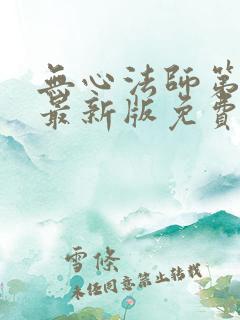 無心法師第
最新版免費
雪條
未经同意禁止转载